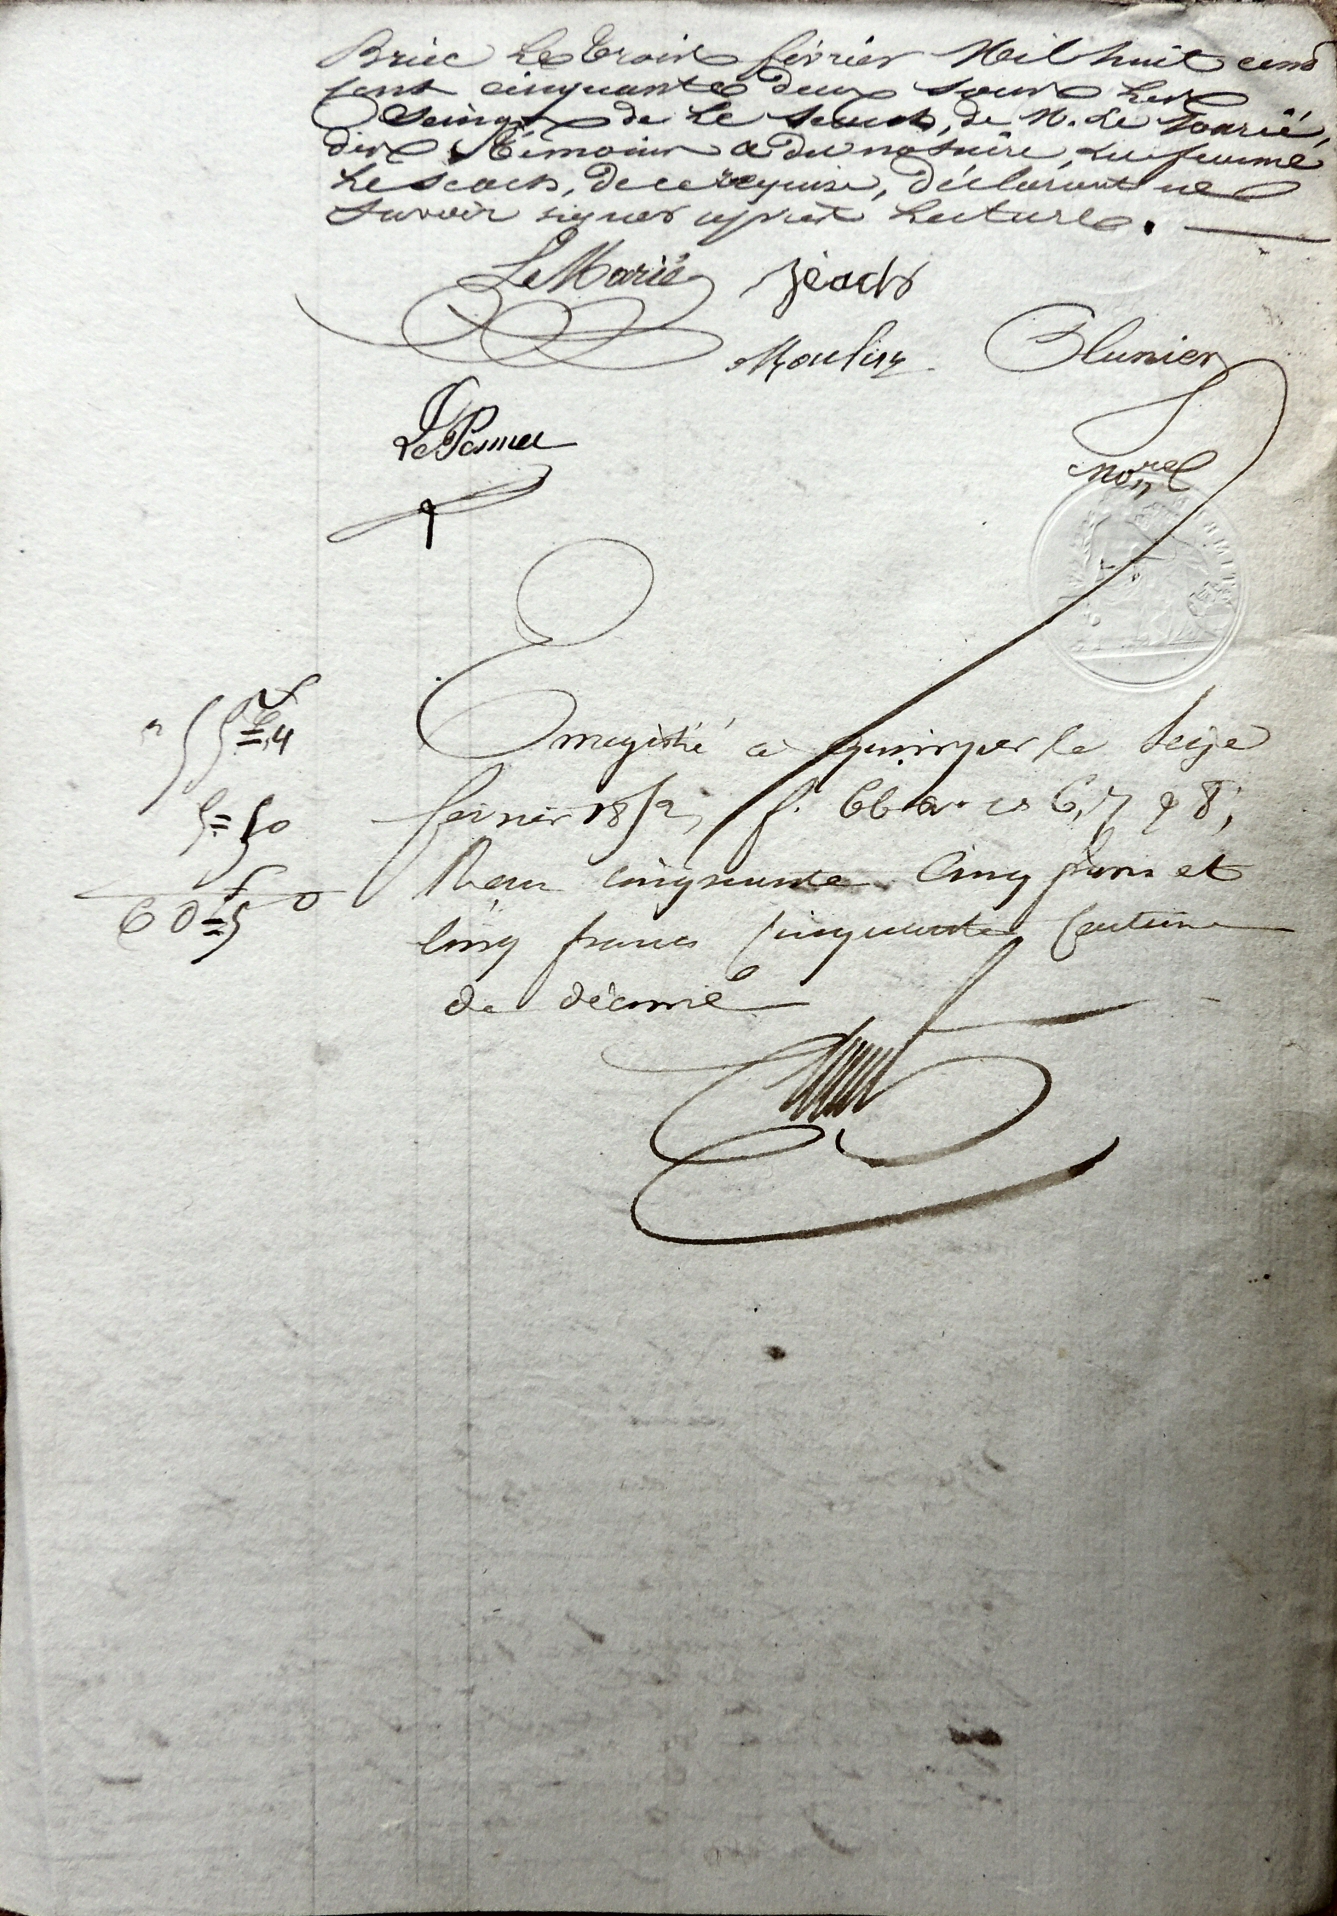 Briec le trois février Mil huit cent
cent cinquante deux sous les
Seings de Le Séach, de M. Le Marié,
des témoins & du notaire, la femme
Le Séach, de ce requise, déclarant ne
savoir signer après lecture. —
Le Marié Séach
Moulin Plunier
Le Pemmec
no.re
55=
Enregistré à quimper le Seize
5=50
février 1852, f. 66 cs 6, 7 & 8,
60=50
Reçu cinquante Cinq francs et
Cinq francs Cinquante Centimes
de décime